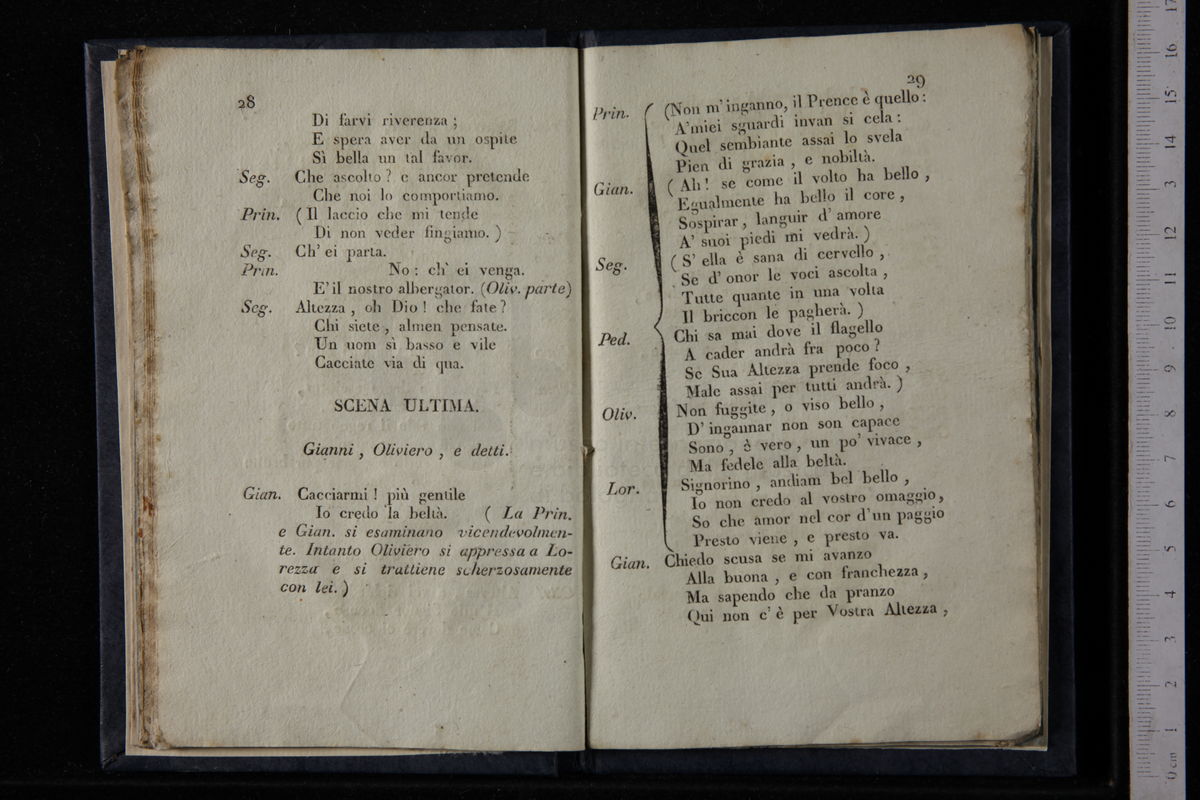 28
Di farvi riverenza ;
E spera aver da un ospite
Sì bella un tal favor.
Seg. Che ascolto ? e ancor pretende
Che noi lo comportiamo.
Prin. ( Il laccio che mi tende
Di non veder fingiamo. )
Seg. Ch' ei parta.
Prin. No : ch' ei venga.
E' il nostro albergator. (Oliv. parte)
Seg. Altezza , oh Dio ! che fate ?
Chi siete , almen pensate.
Un uom sì basso e vile
Cacciate via di qua.
SCENA ULTIMA.
Gianni , Oliviero , e detti.
Gian. Cacciarmi ! più gentile
Io credo la beltà. ( La Prin.
e Gian. si esaminano vicendevolmen-
te. Intanto Oliviero si appressa a Lo-
rezza e si trattiene scherzosamente
con lei. )
29
Prin. (Non m'inganno, il Prence è quello :
A'miei sguardi invan si cela :
Quel sembiante assai lo svela
Pien di grazia , e nobiltà.
Gian. ( Ah ! se come il volto ha bello ,
Egualmente ha bello il core ,
Sospirar , languir d' amore
A' suoi piedi mi vedrà. )
Seg. ( S' ella è sana di cervello ,
Se d' onor le voci ascolta ,
Tutte quante in una volta
Il briccon le pagherà. )
Ped. Chi sa mai dove il flagello
A cader andrà fra poco ?
Se Sua Altezza prende foco ,
Male assai per tutti andrà. )
Oliv. Non fuggite , o viso bello ,
D' ingannar non son capace
Sono , è vero , un po' vivace ,
Ma fedele alla beltà.
Lor. Signorino , andiam bel bello ,
Io non credo al vostro omaggio,
So che amor nel cor d'un paggio
Presto viene , e presto va.
Gian. Chiedo scusa se mi avanzo
Alla buona , e con franchezza ,
Ma sapendo che da pranzo
Qui non c' è per Vostra Altezza ,
0 cm 1 2 3 4 5 6 7 8 9 10 11 12 13 14 15 16 17